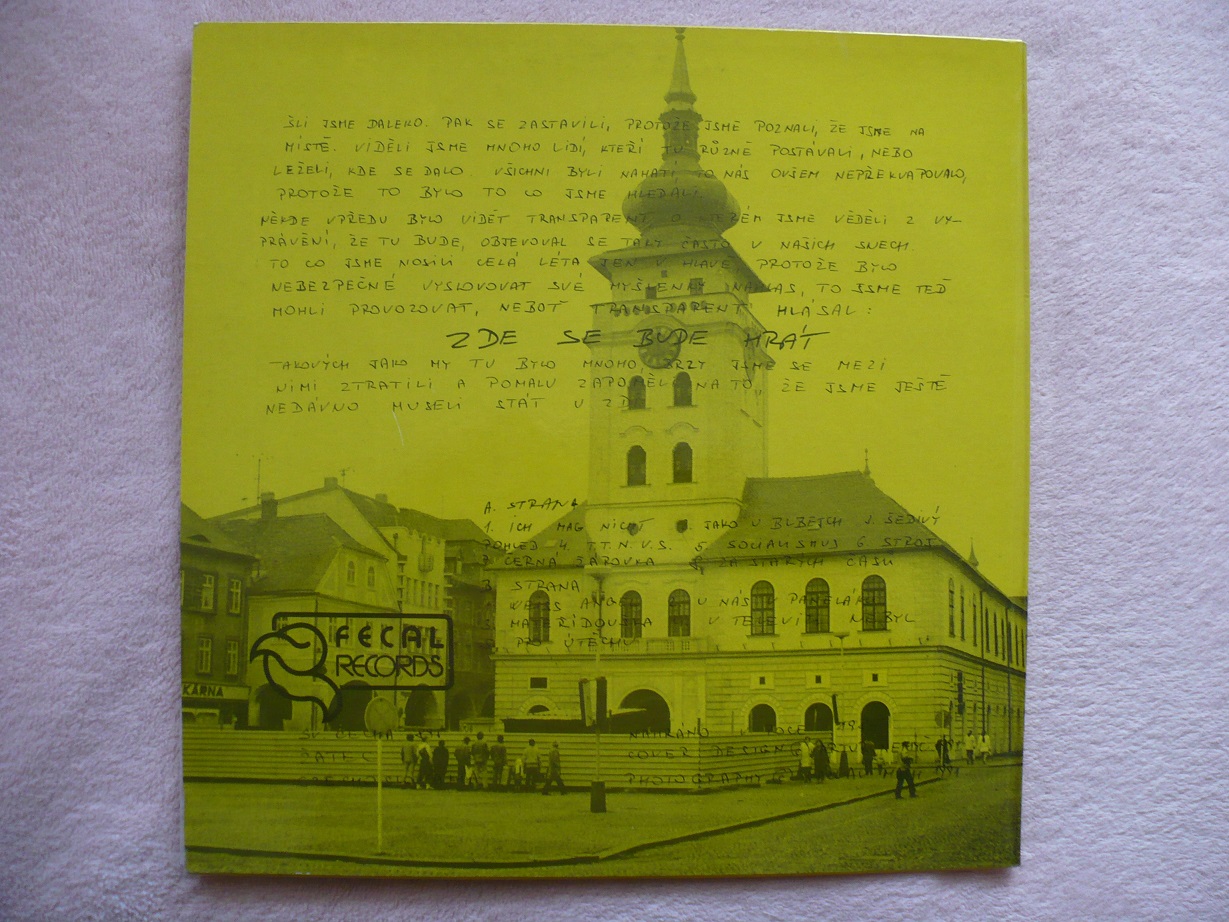 ŠLI JSME DALEKO. PAK SE ZASTAVILI, PROTOŽE JSME POZNALI, ŽE JSME NA
MÍSTĚ. VIDĚLI JSME MNOHO LIDÍ, KTEŘÍ TU RŮZNĚ POSTÁVALI, NEBO
LEŽELI, KDE SE DALO. VŠICHNI BYLI NAHATÍ, TO NÁS OVŠEM NEPŘEKVAPOVALO,
PROTOŽE TO BYLO TO CO JSME HLEDALI.
NĚKDE VPŘEDU BYLO VIDĚT TRANSPARENT O KTERÉM JSME VĚDĚLI Z VY-
PRÁVĚNÍ, ŽE TU BUDE, OBJEVOVAL SE TAKY ČASTO V NAŠICH SNECH.
TO CO JSME NOSILI CELÁ LÉTA JEN V HLAVĚ PROTOŽE BYLO
NEBEZPEČNÉ VYSLOVOVAT SVÉ MYŠLENKY NAHLAS, TO JSME TEĎ
MOHLI PROVOZOVAT, NEBOŤ TRANSPARENT HLÁSAL:
ZDE SE BUDE HRÁT
TAKOVÝCH JAKO MY TU BYLO MNOHO, BRZY JSME SE MEZI
NIMI ZTRATILI A POMALU ZAPOMĚLI NA TO, ŽE JSME JEŠTĚ
NEDÁVNO MUSELI STÁT U ZDI
A. STRANA
1. ICH MAG NICHT 2. JAKO U BLBEJCH 3. ŠEDIVÝ
POHLED 4. T.T.N.V.S. 5. SOCIALISMUS 6. STROJ
7. ČERNÁ ŽÁROVKA 8. ZA STARÝCH ČASŮ
B STRANA
U NÁS V PANELÁKU
MATEŘÍDOUŠKA V TELEVIZI NEBYL
PRO ÚTĚCHU
FECAL
RECORDS
KÁRNA
NAHRÁNO V
COVER DESIGN
PHOTOGRAPHY 1991